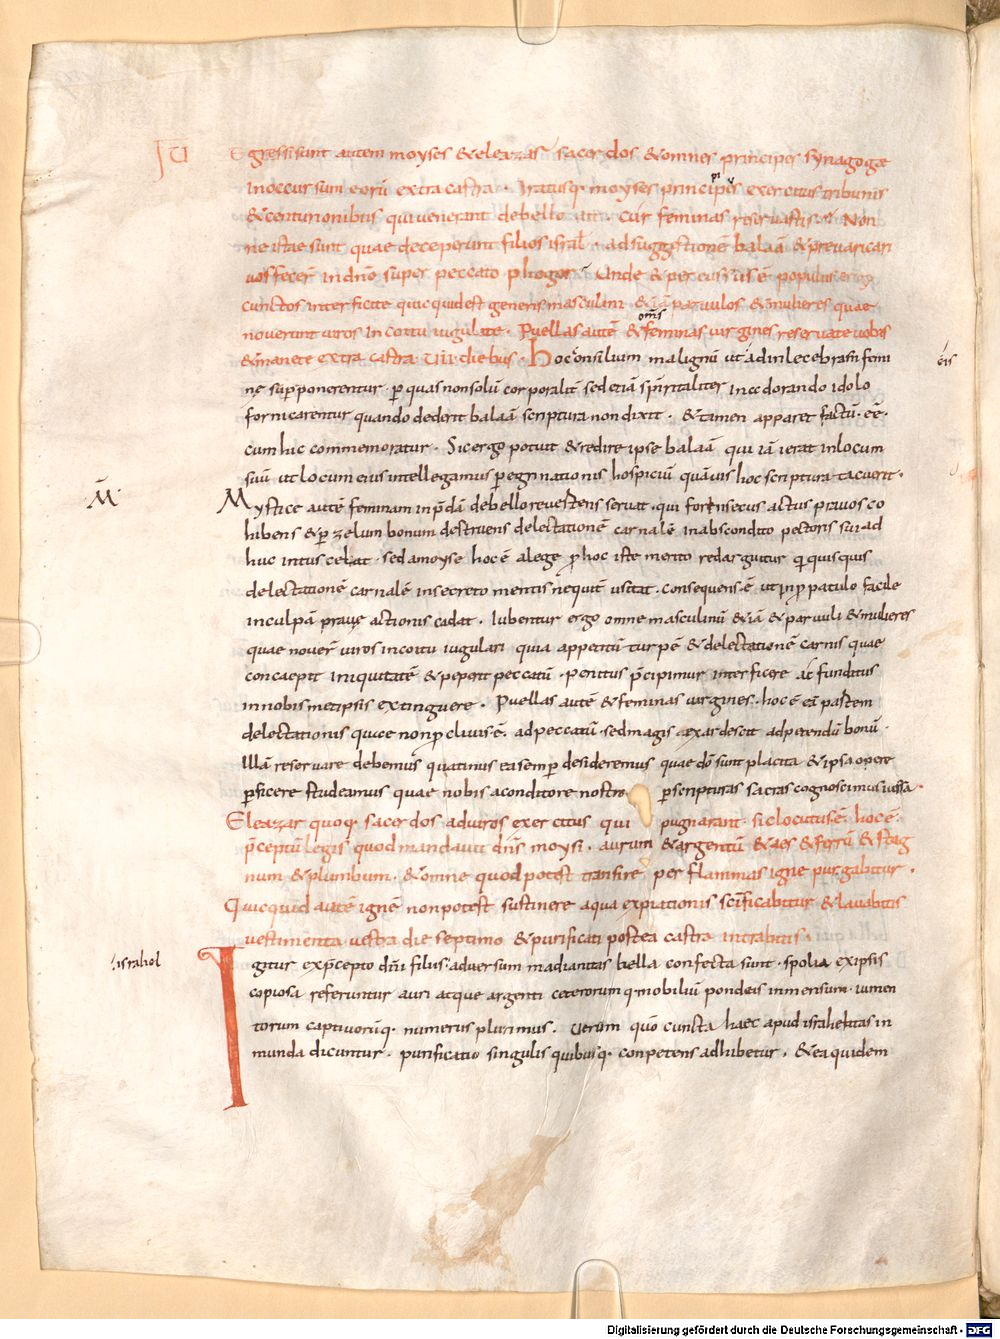 IU Egressi sunt autem moyses & eleazar sacerdos & omnes principes synagogae
in occursum eorū extra castra. Iratusq; moyses principis exercitus tribunis
& centurionibus qui venerant de bello ait. Cur feminas reservastis. Non
ne istae sunt quae deceperunt filios isrl̄. ad suggestionē balaā & prevaricari
vos fecer̄ in dn̄o super peccato phogor. Unde & percussus ē populus
cunctos interficite quicquid est generis masculini & iā parvulos & mulieres quae
omīs
noverunt viros in coitu iugulate. Puellas autē & feminas virgines reservate vobis
& manete extra castra VII diebus. Hoc consilium malignū ut ad inlecebram femi
eis
nę supponerentur. p̱ quas non solū corporalit̄ sed etiā spīritaliter inc dorando idolo
fornicarentur quando dederit balaā scriptura non dixit. & tamen apparet factū. eē.
cum hic commemoratur. Sic ergo potuit & redire ipse balaā qui iā ierat in locum
suū ut locum eius intellegamus peregrinationis hospiciū quāvis hoc scriptura tacuerit.
M̄
Mystice autē feminam in p̄dā de bello revertens servat. qui forinsecus actus pravos co
hibens & p̱ zelum bonum destruens delectationē carnalē in abscondito pectoris sui ad
huc intus celat. sed a moyse hoc ē a lege p̱ hoc iste merito redarguitur q quisquis
delectationē carnalē in secreto mentis nequit̄ visitat. consequens. ē ut in p̱patulo facile
in culpā pravę actionis cadat. Iubentur ergo omne masculinū & iā & parvuli & mulieres
quae nover̄ viros in coitu iugulari quia appetitū turpē & delectationē carnis quae
concaepit iniquitatē & peperit peccatū. penitus p̄cipimur interficere ac funditus
in nobismetipsis extinguere. Puellas autē & feminas virgines. hoc ē eā partem
delectationis quae non p̱clivis ē. ad peccatū. sed magis exardescit ad petendū bonū.
Illā reservare debemus quatinus ea semp̱ desideremus quae dō sunt placita & ipsa opere
p̱ficere studeamus quae nobis a conditore nostro p̱ scripturas sacras cognoscimus iussa.
Eleazar quoq; sacerdos ad viros exercitus qui pugnarant. sic locutus ē. hoc ē.
p̄ceptū legis quod mandavit dn̄s moysi. aurum & argentū & aes & ferrū & stag
num & plumbum. & omne quod potest transire per flammas igne purgabitur.
Quicquid autē ignē non potest sustinere aqua expiationis sc̄ificabitur & lavabitis
vestimenta vestra die septimo & purificati postea castra intrabitis.
israhel
Igitur ex p̄cepto dn̄i filiis adversum madianitas bella confecta sunt. spolia ex ipsis
copiosa referuntur auri atque argenti ceterorumq; mobiliū pondus inmensum. iumen
torum captivorūq; numerus plurimus. Verum quō cuncta haec apud israhelitas in
munda dicuntur. purificatio singulis quibusq; conpetens adhibetur. & ea quidem
Digitalisierung gefördert durch die Deutsche Forschungsgemeinschaft - DFG